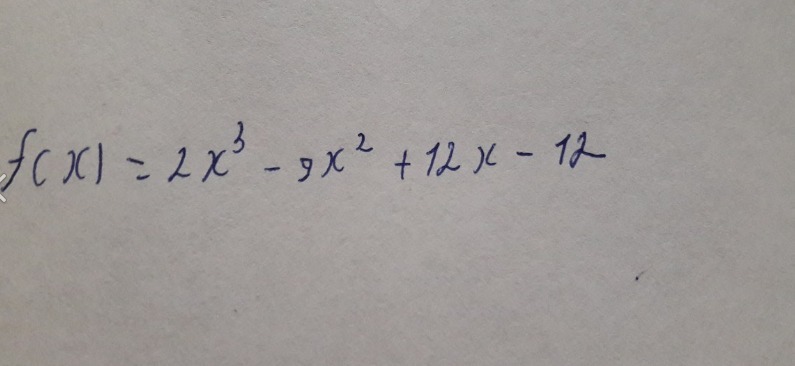 f(x) = 2x³ - 9x² + 12x - 12